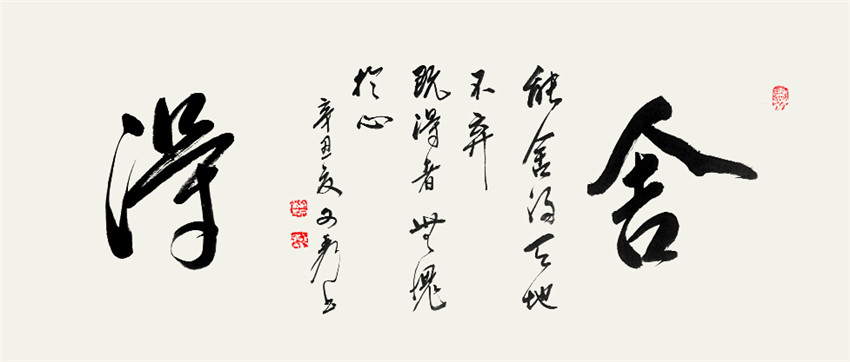 舍
能舍得天地
不弃
既得者無愧
於心
辛丑夏
得